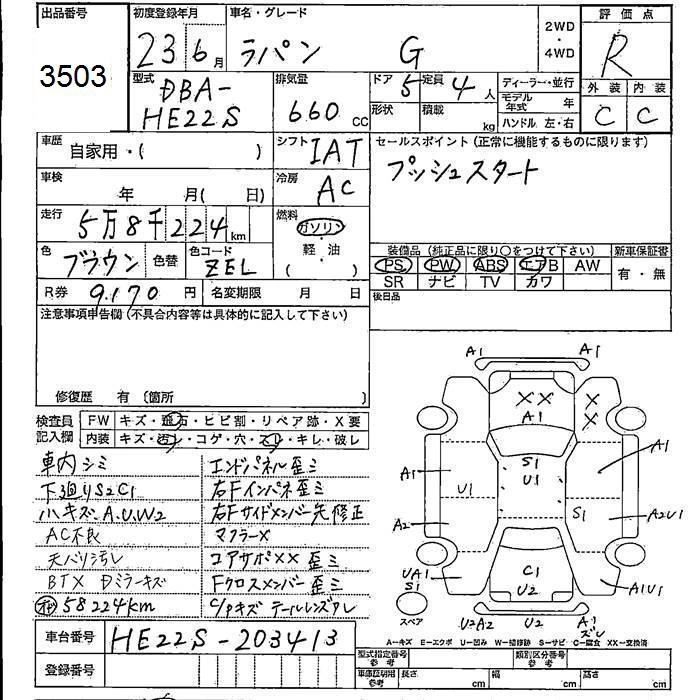 出品番号
3503
初度登録年月
23 6月
車名・グレード
ラパン G
2WD
・
4WD
評価点
R
外装 内装
C C
型式
DBA-
HE22S
排気量
660 CC
ドア 5
定員 4人
形状
積載 kg
ディーラー・並行
モデル年式 年
ハンドル 左・右
車歴
自家用・( )
シフト
IAT
セールスポイント(正常に機能するものに限ります)
プッシュスタート
車検
年 月( 日)
冷房
AC
走行
5万8千224km
燃料
ガソリン
軽・油
( )
色
ブラウン
色替
色コード
ZEL
装備品(純正品に限り○をつけて下さい)
新車保証書
PS PW ABS エアB AW
SR ナビ TV カワ
有・無
R券 9.170円
名変期限 月 日
後日品
注意事項申告欄(不具合内容等は具体的に記入して下さい)
修復歴 有〔箇所 〕
検査員
記入欄
FW キズ・飛石・ヒビ割・リペア跡・X要
内装 キズ・汚レ・コゲ・穴・スレ・キレ・破レ
車内シミ
下廻りS2C1
小キズ A.U.W2
AC不良
天バリ汚レ
BTX Dミラーキズ
58224km
エンドパネル歪ミ
右Fインパネ歪ミ
右Fサイドメンバー先修正
マフラーX
コアサポXX 歪ミ
Fクロスメンバー歪ミ
C/Pキズ テールレンズスレ
A1 A1
XX X
X
A1
S1
U1
A1
A1
U1
S1
A2
A2U1
UA1
S1
C1
U2
A1U1
スペア
U2A2 U2 A1
ズレ
A-キズ E-エクボ U-凹み W-補修跡 S-サビ C-腐食 XX-交換済
車台番号
HE22S-203413
登録番号
型式指定番号
参考
類別区分番号
参考
車庫証明用
参考
長さ cm
幅 cm
高さ cm